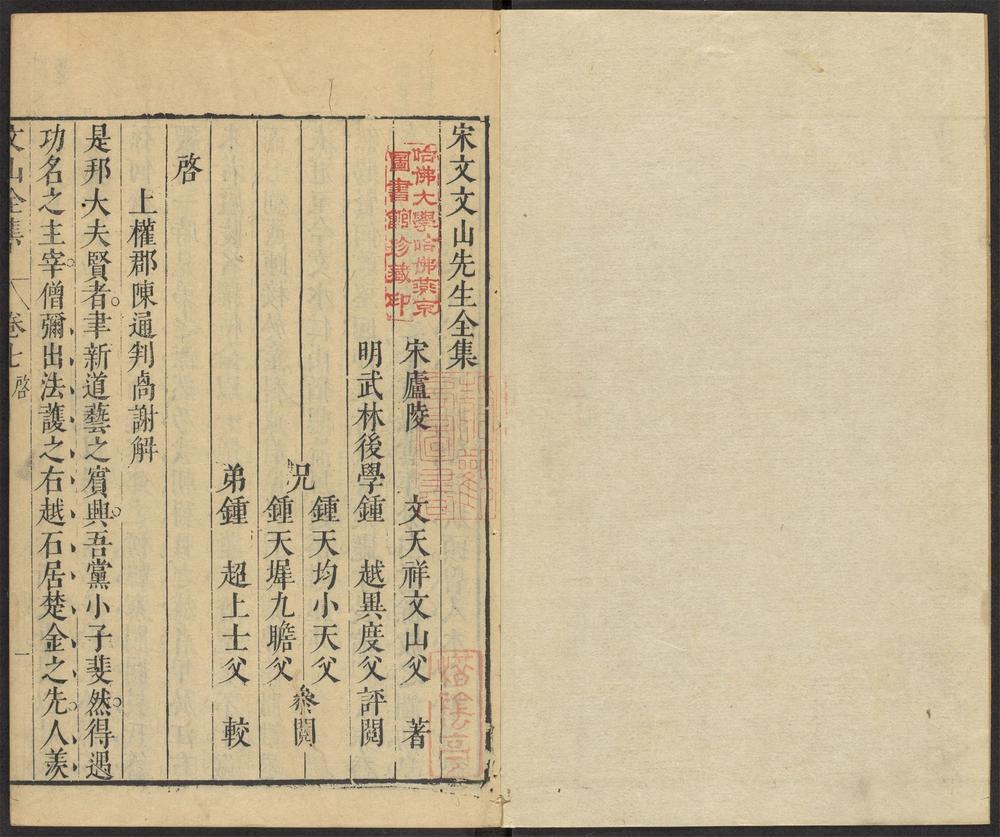 宋文文山先生全集
哈佛大學哈佛燕京
圖書館珍藏印
宋廬陵 文天祥文山父 著
明武林後學鍾 越異度父評閱
兄
鍾天均小天父
鍾天墀九瞻父
參閱
弟鍾 超上士父 較
啓
上權郡陳通判卨謝解
是邦大夫賢者聿新道藝之賓興吾黨小子斐然得遇
功名之主宰僧彌出法護之右越石居楚金之先人羨
文山全集 卷七 啓 一